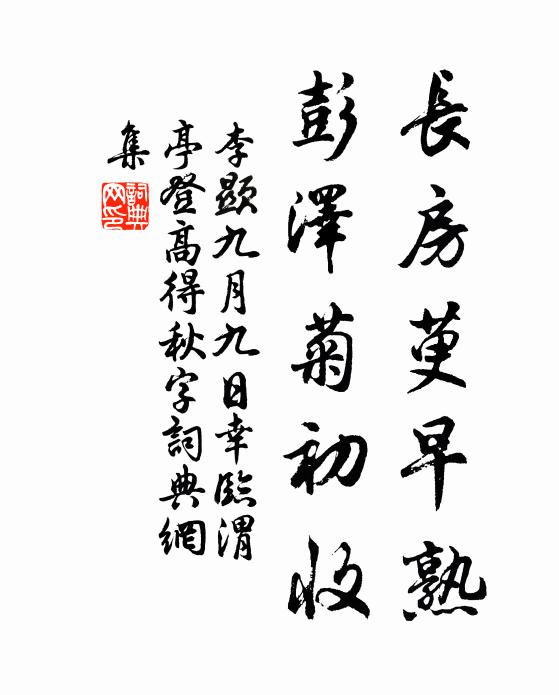 長房萸早熟
彭澤菊初收
李顯九月九日幸臨渭
亭登高得秋字詞典網
集
詞典
网印